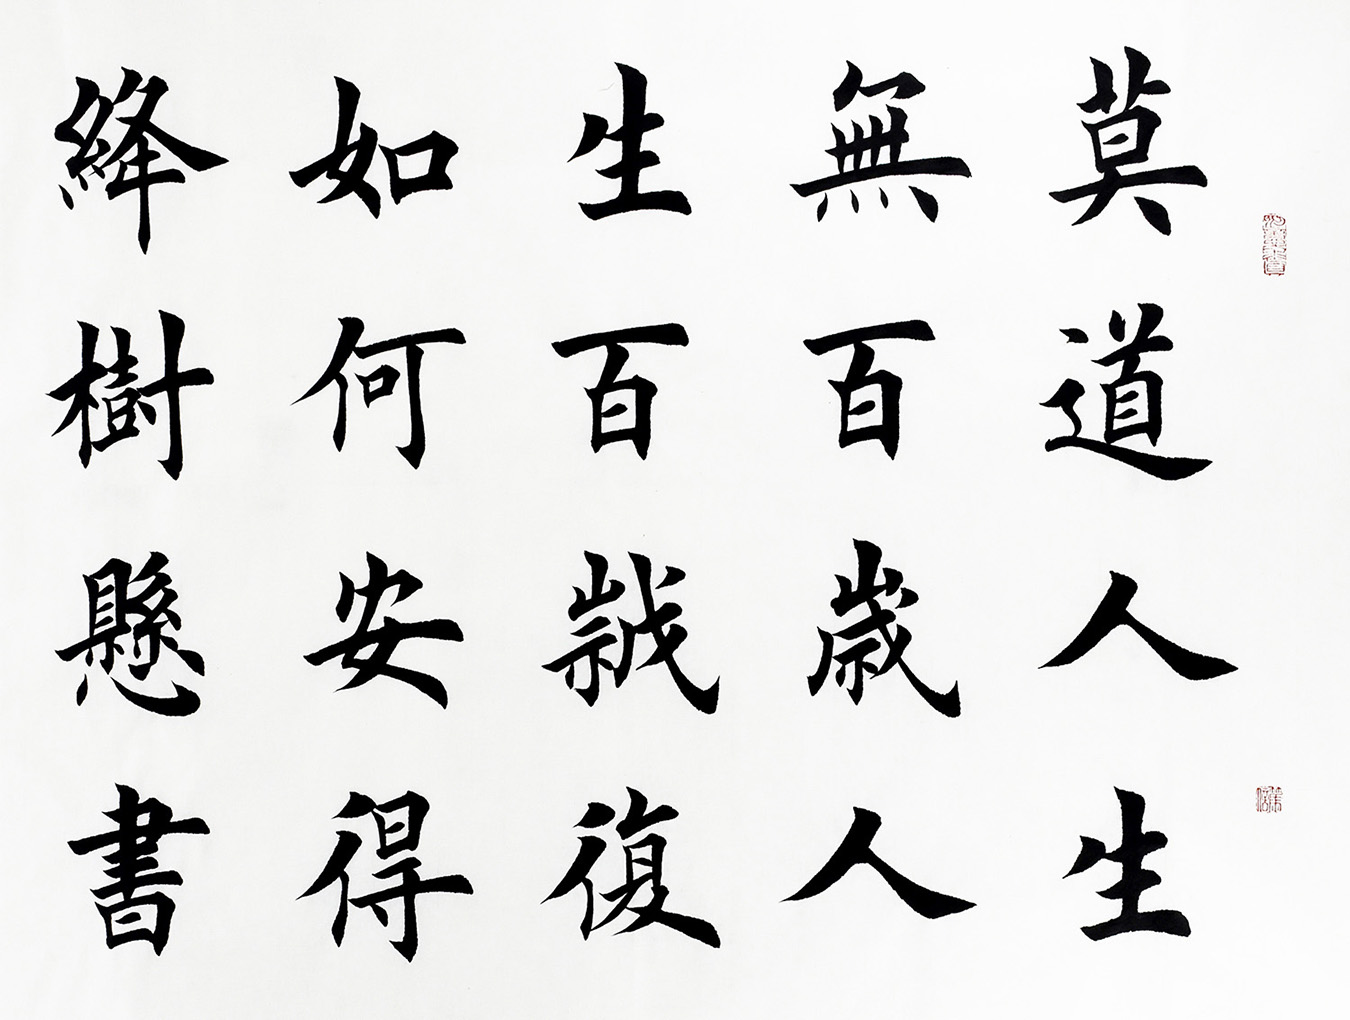 莫道人生
無百歲人
生百歲復
如何安得
絳樹懸書